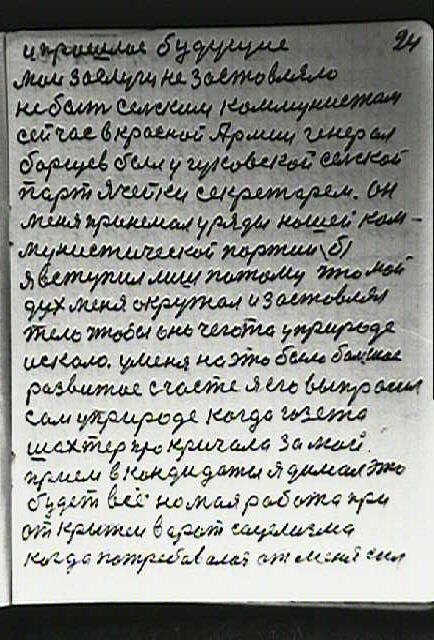 24
и прошлое будущие
мои заслуги не застовляло
не быть сельским коммунистам
сейчас в красной Армии генерал
борщев был у гуковской селской
парт ячейки секретарем. он
меня принемал у ряды ношей ком-
мунистической портии (б)
я вступил лиш потому што мой
дух меня окружал и застовлял
тело чтобы оно чегота у природе
искало. у меня на это было большое
развитое счасте я его выпросил
сам у природе когда газета
шахтер про кричала за мой
прием в кондидаты я думал это
будет всё но моя работа при
от крытии варот сацелизма
когда потребавалас от меня сил